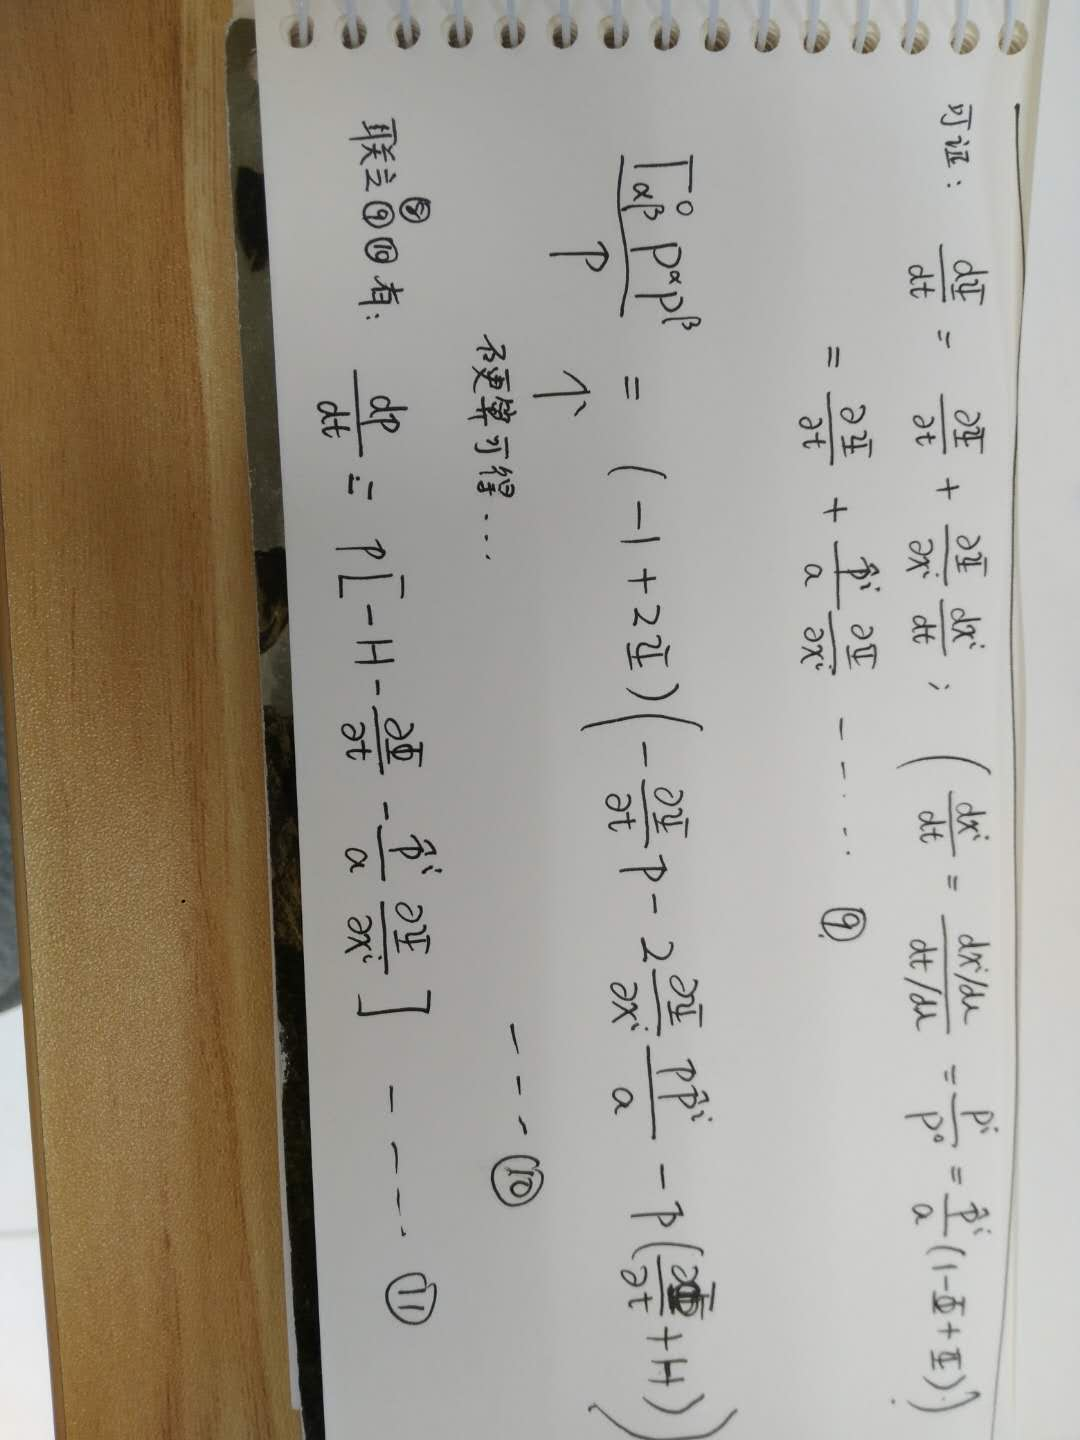 可证: dΨ/dt = ∂Ψ/∂t + ∂Ψ/∂xⁱ dxⁱ/dt ; (dxⁱ/dt = (dxⁱ/dλ)/(dt/dλ) = pⁱ/p⁰ = p̂ⁱ/a (1-Φ+Ψ))
= ∂Ψ/∂t + p̂ⁱ/a ∂Ψ/∂xⁱ ---- ⑨
Γ⁰αβ pᵅpᵝ / p = (-1+2Ψ)(-∂Ψ/∂t p - 2 ∂Ψ/∂xⁱ pp̂ⁱ/a - p(∂Φ/∂t + H))
↑
硬算可得... --- ⑩
联立⑧⑨⑩有: dp/dt = p[-H - ∂Φ/∂t - p̂ⁱ/a ∂Ψ/∂xⁱ] ---- ⑪